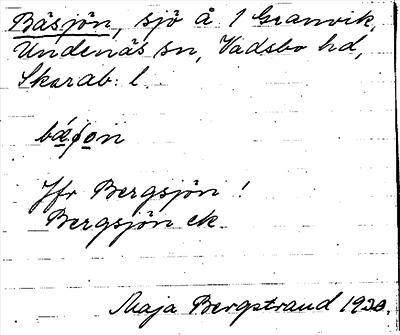 Bäsjön, sjö å 1 Granvik,
Undenäs sn, Vadsbo hd,
Skarab. l.
Jfr Bergsjön!
Bergsjön ek.
Maja Bergstrand